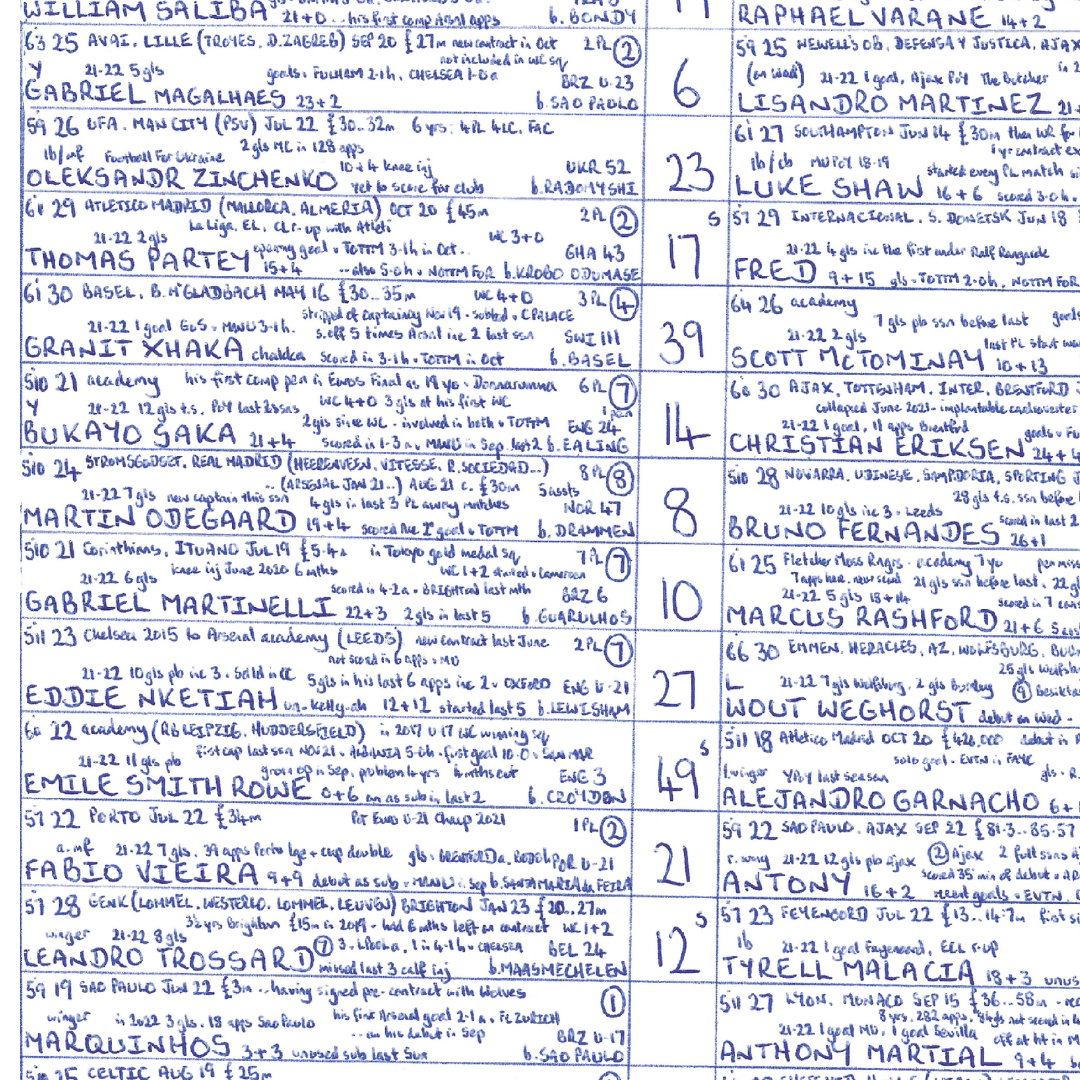 WILLIAM SALIBA 21+0 .. his first comp Arsnl apps b. BONDY
63 25 AVAI, LILLE (TROYES, D.ZAGREB) SEP 20 £27m new contract in Oct 2PL (2)
not included in WC sq
Y 21-22 5gls goals . FULHAM 2-1h, CHELSEA 1-0a BRZ U-23
GABRIEL MAGALHAES 23+2 b.SAO PAOLO
59 26 UFA, MAN CITY (PSV) JUL 22 £30..32m 6yrs: 4PL 4LC, FAC
lb/mf Football For Ukraine 2gls MC in 128 apps
10+4 knee inj UKR 52
OLEKSANDR ZINCHENKO yet to score for club b.RADOMYSHI
61 29 ATLETICO MADRID (MALLORCA, ALMERIA) OCT 20 £45m 2PL (2)
La Liga, EL, CL r-up with Atleti
21-22 2gls WC 3+0
opening goal v TOTTM 3-1h in Oct.. GHA 43
THOMAS PARTEY 15+4 ..also 5-0h v NOTTM FOR b.KROBO ODUMASE
61 30 BASEL, B.M'GLADBACH MAY 16 £30..35m WC 4+0 3PL (4)
stripped of captaincy Nov 19 - subbed v CPALACE
21-22 1 goal v MANU 3-1h. s.off 5 times Arsnl inc 2 last ssn SWI 111
GRANIT XHAKA chakka scored in 3-1h v TOTTM in Oct b.BASEL
510 21 academy his first comp pen in Euros Final as 19yo - Donnarumma 6PL (7)
WC 4+0 3gls at his first WC 1pen
Y 21-22 12gls t.s. PoY last 2ssns 2gls since WC - involved in both v TOTTM ENG 24
BUKAYO SAKA 21+4 scored in 1-3a v MANU in Sep last2 b.EALING
510 24 STROMSGODSET, REAL MADRID (HEERENVEEN, VITESSE, R.SOCIEDAD...) 8PL (8)
.. (ARSENAL JAN 21..) AUG 21 c. £30m 5assts
21-22 7gls new captain this ssn 4gls in last 3 PL away matches NOR 47
MARTIN ODEGAARD 19+4 scored v TOTTM b. DRAMMEN
510 21 Corinthians, ITUANO JUL 19 £5.4m in Tokyo gold medal sq 7PL (7)
knee inj June 2020 6mths WC 1+2 started v Cameroon
21-22 6gls scored in 4-2a v BRIGHTON last mth BRZ 6
GABRIEL MARTINELLI 22+3 2gls in last 5 b.GUARULHOS
511 23 Chelsea 2015 to Arsenal academy (LEEDS) new contract last June 2PL (7)
not scored in 6 apps v MU
21-22 10gls pb inc 3 v Sndlnd in LC 5gls in his last 6 apps inc 2 v OXFORD ENG U-21
EDDIE NKETIAH en-ketty-ah 12+12 started last 5 b.LEWISHAM
60 22 academy (RB LEIPZIG, HUDDERSFIELD) in 2017 U17 WC winning sq
first cap last ssn NOV 21 v ALBANIA 5-0h - first goal 10-0 v SAN MAR
21-22 11gls pb groin op in Sep, problem 4yrs 4mths out ENG 3
EMILE SMITH ROWE 0+6 on as sub in last 2 b. CROYDON
57 22 PORTO JUL 22 £34m Por Euro U-21 Champ 2021 1PL (2)
a.mf 21-22 7gls, 39 apps Porto lge + cup double gls v BRENTFORD a, BODO h POR U-21
FABIO VIEIRA 9+9 debut as sub v MANU in Sep b.SANTA MARIA da FEIRA
57 28 GENK (LOMMEL, WESTERLO, LOMMEL, LEUVEN) BRIGHTON JAN 23 £20..27m
3½yrs Brighton £15m in 2019 - had 6mths left on contract WC 1+2
winger 21-22 8gls (7) 3 v LPool a, 1 in 4-1h v CHELSEA BEL 24
LEANDRO TROSSARD missed last 3 calf inj b.MAASMECHELEN
59 19 SAO PAULO JUN 22 £3m ..having signed pre-contract with Wolves (1)
winger in 2022 3gls, 18 apps Sao Paulo his first Arsenal goal 2-1a v FC ZURICH
..on his debut in Sep BRZ U-17
MARQUINHOS 3+3 unused sub last Sun b.SAO PAULO
510 25 CELTIC AUG 19 £25m
6
23
S
17
39
14
8
10
27
S
49
21
S
12
RAPHAEL VARANE 14+2
59 25 NEWELL'S OB, DEFENSA Y JUSTICA, AJAX
(on Wed) 21-22 1 goal, Ajax PoY The Butcher
LISANDRO MARTINEZ 21
61 27 SOUTHAMPTON JUN 14 £30m then WR for
1yr contract ex
lb/cb MUPOY 18-19 started every PL match
LUKE SHAW 16+6 scored 3-0h
57 29 INTERNACIONAL, S. DONETSK JUN 18
21-22 4gls inc the first under Ralf Rangnick
FRED 9+15 gls v TOTTM 2-0h, NOTTM FOR
64 26 academy
7gls pb ssn before last goals
21-22 2gls last PL start
SCOTT McTOMINAY 10+13
60 30 AJAX, TOTTENHAM, INTER, BRENTFORD
collapsed June 2021 - implantable cardioverter
21-22 1 goal, 11 apps Brentford goals v FU
CHRISTIAN ERIKSEN 24+4
510 28 NOVARRA, UDINESE, SAMPDORIA, SPORTING
28gls t.s. ssn before
21-22 10gls inc 3 v Leeds scored in last 2
BRUNO FERNANDES 26+1
61 25 Fletcher Moss Rngrs - academy 7yo pen miss
21gls ssn before last, 22gl
21-22 5gls 18+14 scored in 7
MARCUS RASHFORD 21+6
66 30 EMMEN, HERACLES, AZ, WOLFSBURG, BUR
25gls Wolfsb
L 21-22 7gls Wolfsburg, 2gls Burnley (9) Besikta
WOUT WEGHORST debut on Wed -
511 18 Atletico Madrid OCT 20 £420,000 debut in
solo goal v EVTN in FAYC
l.winger YPOY last season gls v R.
ALEJANDRO GARNACHO 6+
59 22 SAO PAULO, AJAX SEP 22 £81.3..85.57
r.wing 21-22 12gls pb Ajax (2) Ajax 2 full ssns
scored 35 min of debut v AR
ANTONY 16+2 recent goals v EVTN,
57 23 FEYENOORD JUL 22 £13..14.7m first si
lb 21-22 1 goal Feyenoord, ECL r-up
TYRELL MALACIA 18+3 unus
511 27 LYON, MONACO SEP 15 £36..58m
8yrs, 282 apps, not scored in
21-22 1 goal MU, 1 goal Sevilla off at ht in M
ANTHONY MARTIAL 9+4